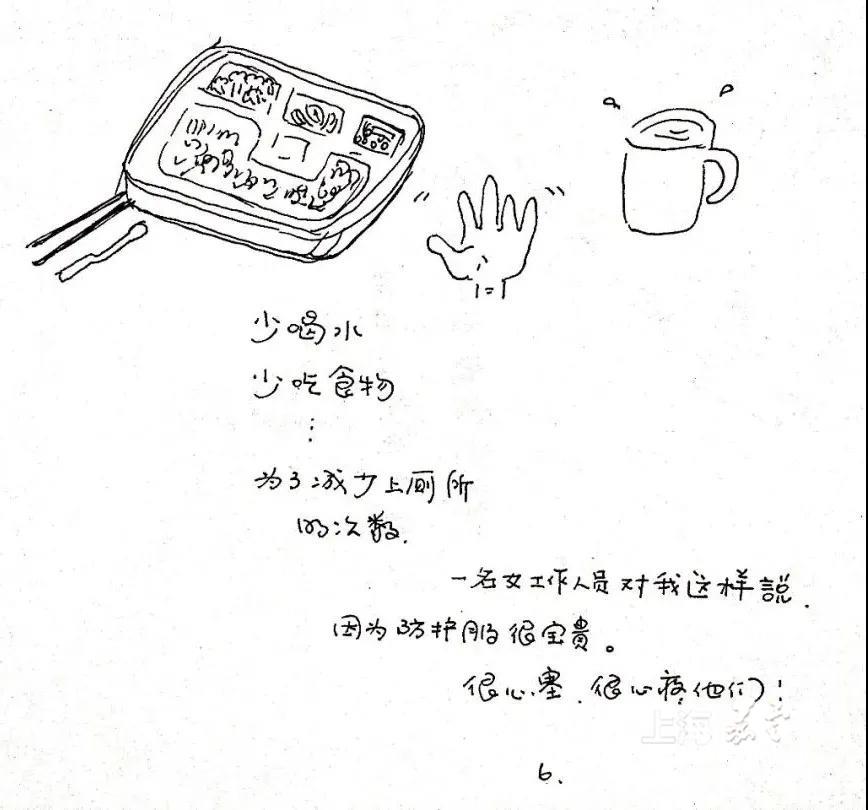 少喝水
少吃食物
⋮
为了减少上厕所
的次数.
一名女工作人员对我这样説.
因为防护服很宝貴。
很心塞.很心疼他们！
上海
6.